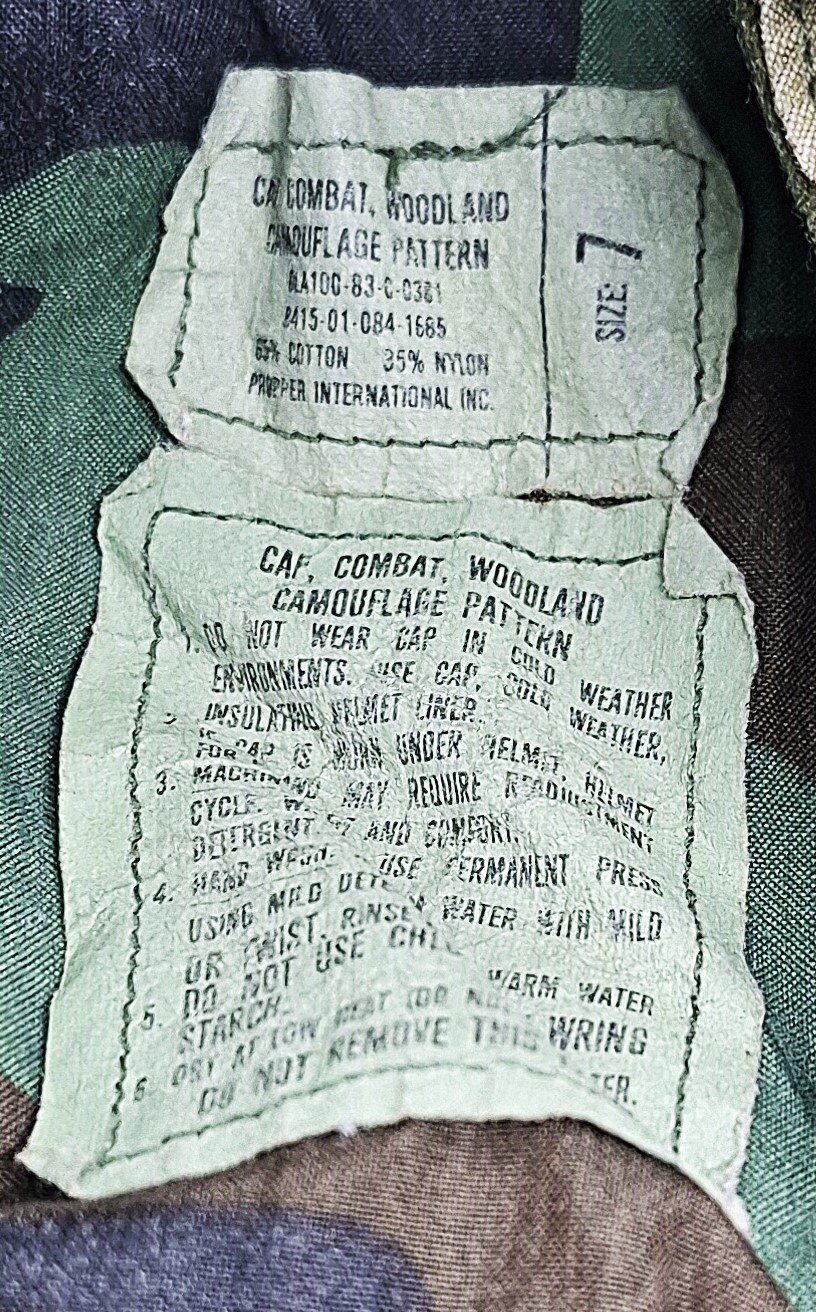 COMBAT, WOODLAND
CAMOUFLAGE PATTERN
DLA100-83-C-0381
8415-01-084-1685
65% COTTON 35% NYLON
PROPPER INTERNATIONAL INC.
SIZE: 7
CAP, COMBAT, WOODLAND
CAMOUFLAGE PATTERN
1. DO NOT WEAR CAP IN COLD WEATHER
ENVIRONMENTS. USE CAP, COLD WEATHER,
INSULATING HELMET LINER.
CAP IS WORN UNDER HELMET, HELMET
MAY REQUIRE READJUSTMENT
FOR AND COMFORT.
3. MACHINE USE PERMANENT PRESS
CYCLE. WATER WITH MILD
DETERGENT
4. HAND WASH. WARM WATER
USING MILD WRING
OR TWIST. RINSE
5. DO NOT USE
STARCH.
6. DRY AT LOW HEAT (DO NOT
DO NOT REMOVE THIS